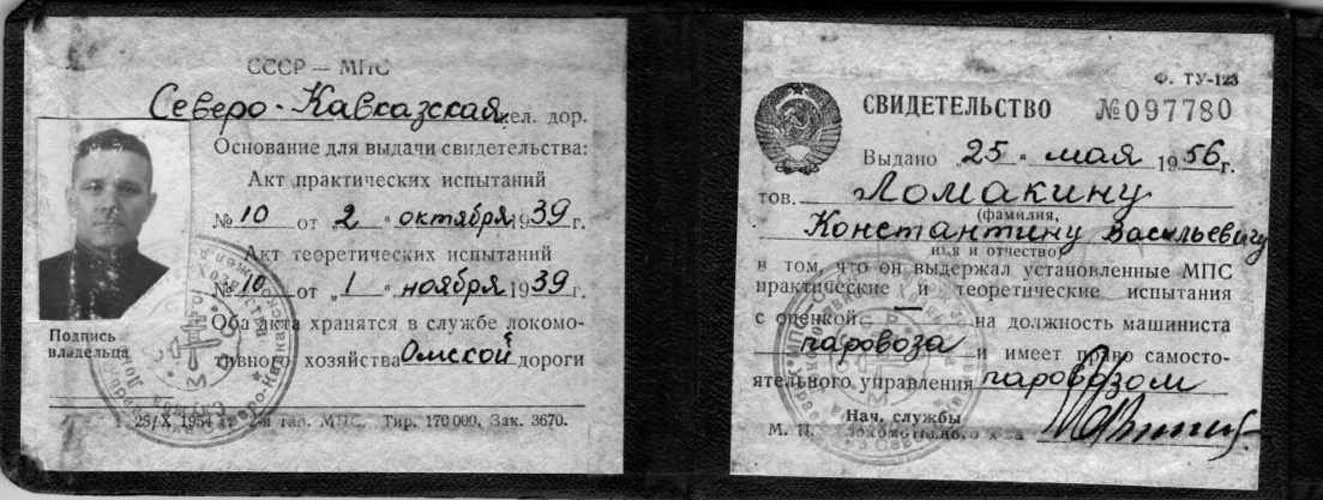 СССР — МПС
Северо-Кавказская жел. дор.
Основание для выдачи свидетельства:
Акт практических испытаний
№ 10 от „2“ октября 1939 г.
Акт теоретических испытаний
№ 10 от „1“ ноября 1939 г.
Оба акта хранятся в службе локомо-
тивного хозяйства Омской дороги
Подпись
владельца
25/X 1954 г. 2-я тип. МПС. Тир. 170 000. Зак. 3670.
Ф. ТУ-123
СВИДЕТЕЛЬСТВО №097780
Выдано „25“ мая 1956 г.
тов. Ломакину
(фамилия,
Константину Васильевичу
имя и отчество)
в том, что он выдержал установленные МПС
практические и теоретические испытания
с оценкой — на должность машиниста
паровоза и имеет право самосто-
ятельного управления паровозом
Нач. службы
М. П. локомотивного х-ва